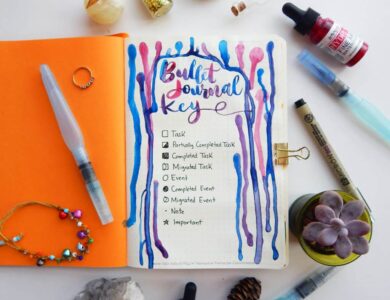 Bullet
Journal
Key
Task
Partially Completed Task
Completed Task
Migrated Task
Event
Completed Event
Migrated Event
- Note
Important